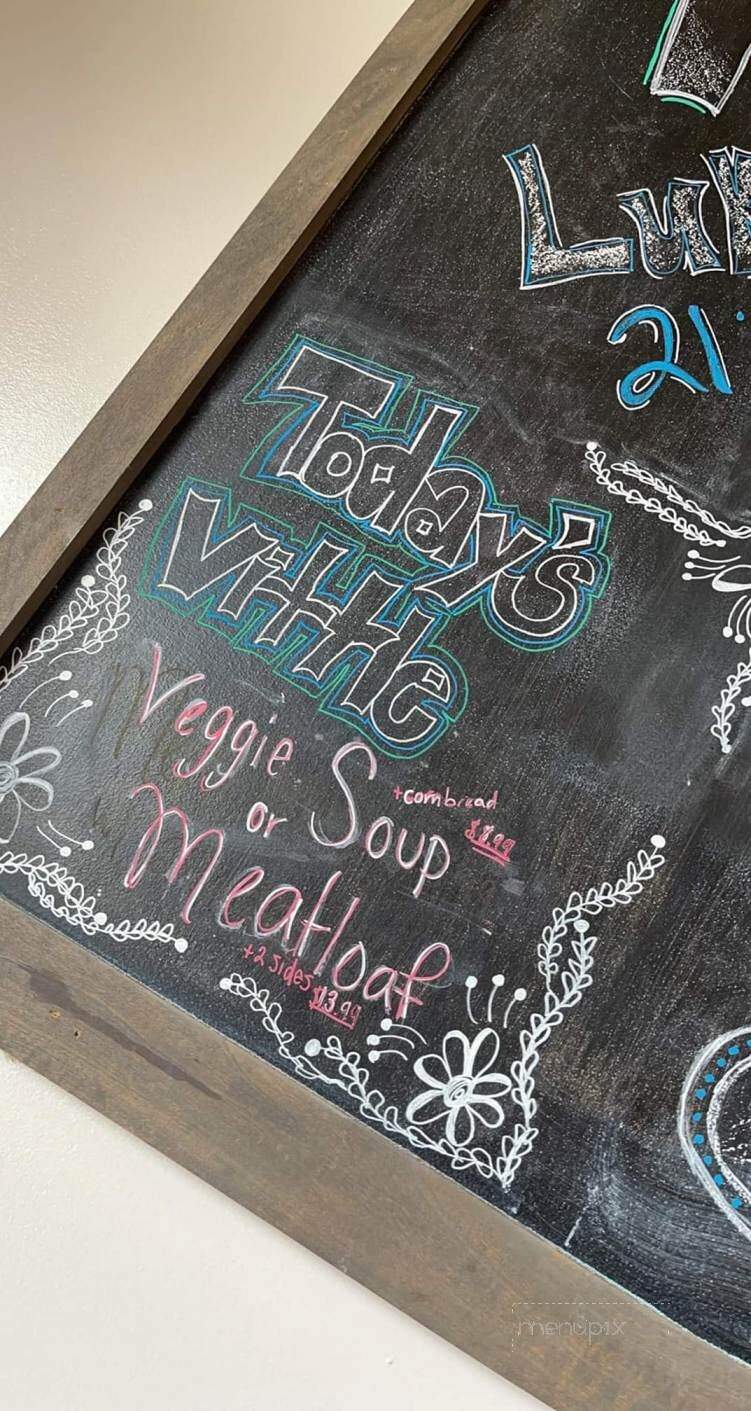 Today's
Vittle
Veggie Soup
+cornbread
$8.99
or
Meatloaf
+2 sides
$13.99
21
menupix